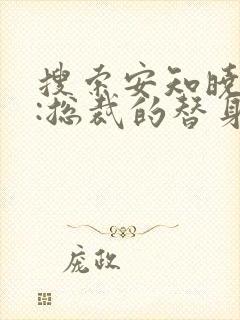 搜索安知晓
:总裁的替身
庞政